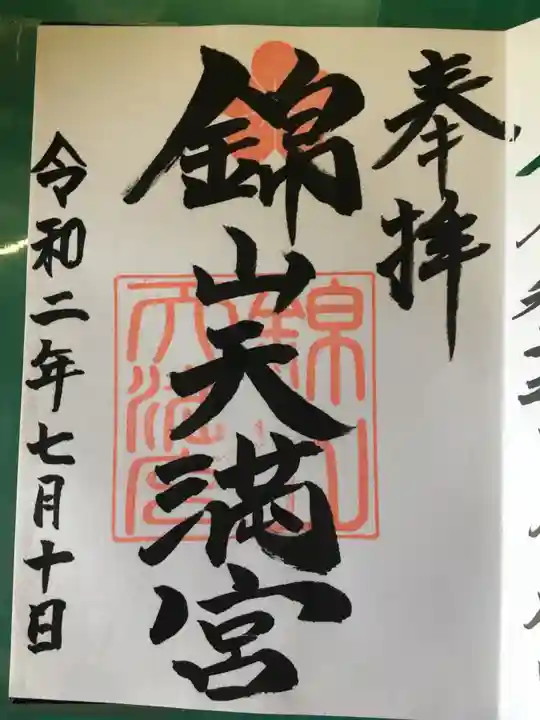 奉拝
錦山天満宮
令和二年七月十日
錦山天満宮